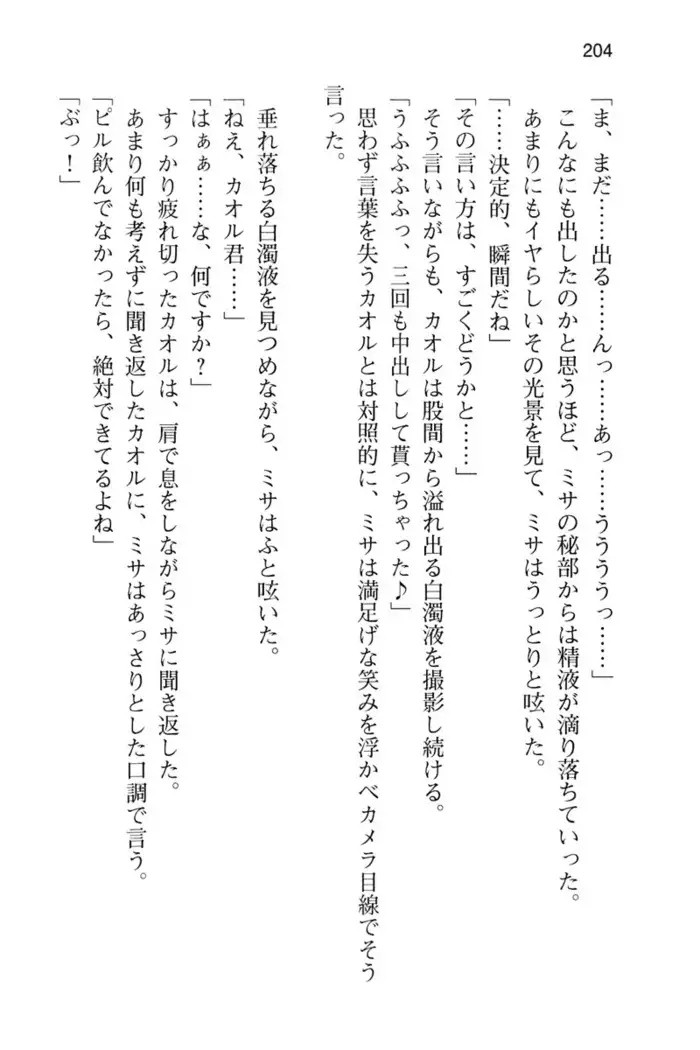 204
「ま、まだ……出る……んっ……あっ……ううううっ……」
こんなにも出したのかと思うほど、ミサの秘部からは精液が滴り落ちていった。
あまりにもイヤらしいその光景を見て、ミサはうっとりと呟いた。
「……決定的、瞬間だね」
「その言い方は、すごくどうかと……」
そう言いながらも、カオルは股間から溢れ出る白濁液を撮影し続ける。
「うふふふふっ、三回も中出しして貰っちゃった♪」
思わず言葉を失うカオルとは対照的に、ミサは満足げな笑みを浮かべカメラ目線でそう
言った。
垂れ落ちる白濁液を見つめながら、ミサはふと呟いた。
「ねえ、カオル君……」
「はぁぁ……な、何ですか？」
すっかり疲れ切ったカオルは、肩で息をしながらミサに聞き返した。
あまり何も考えずに聞き返したカオルに、ミサはあっさりとした口調で言う。
「ピル飲んでなかったら、絶対できてるよね」
「ぶっ！」